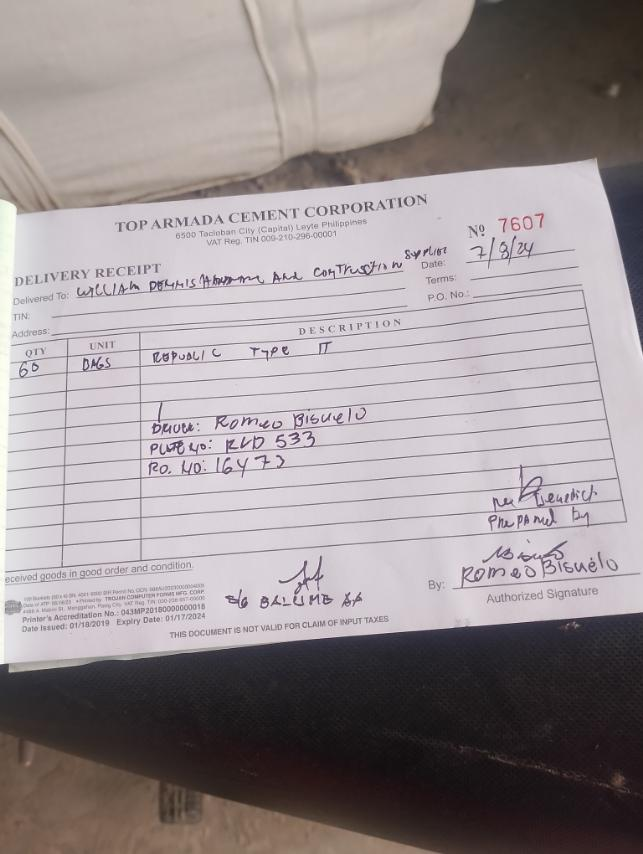 TOP ARMADA CEMENT CORPORATION
6500 Tacloban City (Capital) Leyte Philippines
VAT Reg. TIN 009-210-296-00001
Nº 7607
DELIVERY RECEIPT
Date: 7/8/24
Delivered To: WILLIAM DENNIS AND Supplies
TIN:
Terms:
Address:
P.O. No.:
QTY UNIT DESCRIPTION
60 BAGS REPUBLIC TYPE IT
DRIVER: Romeo Bisuelo
PLATE NO: RVD 533
RO. NO: 16473
Benedict
Prepared by
eceived goods in good order and condition.
By: Romeo Bisuelo
Authorized Signature
TROJAN COMPUTER FORMS MFG. CORP.
Printer's Accreditation No.: 043MP20180000000018
Date Issued: 01/18/2019 Expiry Date: 01/17/2024
THIS DOCUMENT IS NOT VALID FOR CLAIM OF INPUT TAXES